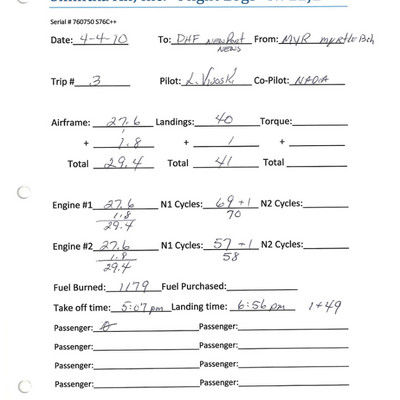 Serial # 760750 S76C++
Date: 4-4-10 To: DHF NEWPORT NEWS From: MYR myrtle Bch
Trip # 3 Pilot: L. Co-Pilot: NADIA
Airframe: 27.6 Landings: 40 Torque:
+ 1.8 + 1 +
Total 29.4 Total 41 Total
Engine #1 27.6 N1 Cycles: 69 +1 N2 Cycles:
1.8 70
29.4
Engine #2 27.6 N1 Cycles: 57 +1 N2 Cycles:
1.8 58
29.4
Fuel Burned: 1179 Fuel Purchased:
Take off time: 5:07 pm Landing time: 6:56 pm 1+49
Passenger: 0 Passenger:
Passenger: Passenger:
Passenger: Passenger:
Passenger: Passenger: